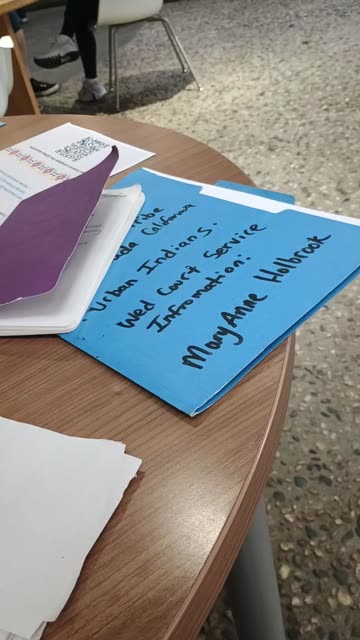 California
Urban Indians.
Wed Court Service
Infromation:
MaryAnne Holbrook